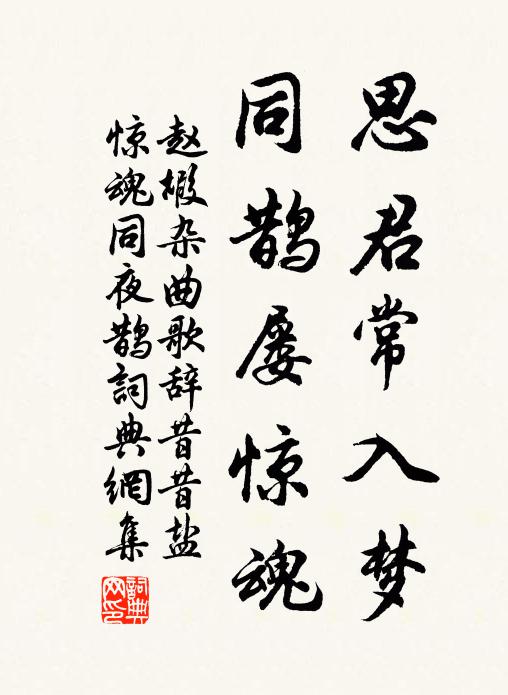 思君常入梦
同鹊屡惊魂
赵嘏杂曲歌辞昔昔盐
惊魂同夜鹊詞典網集
詞典
网印